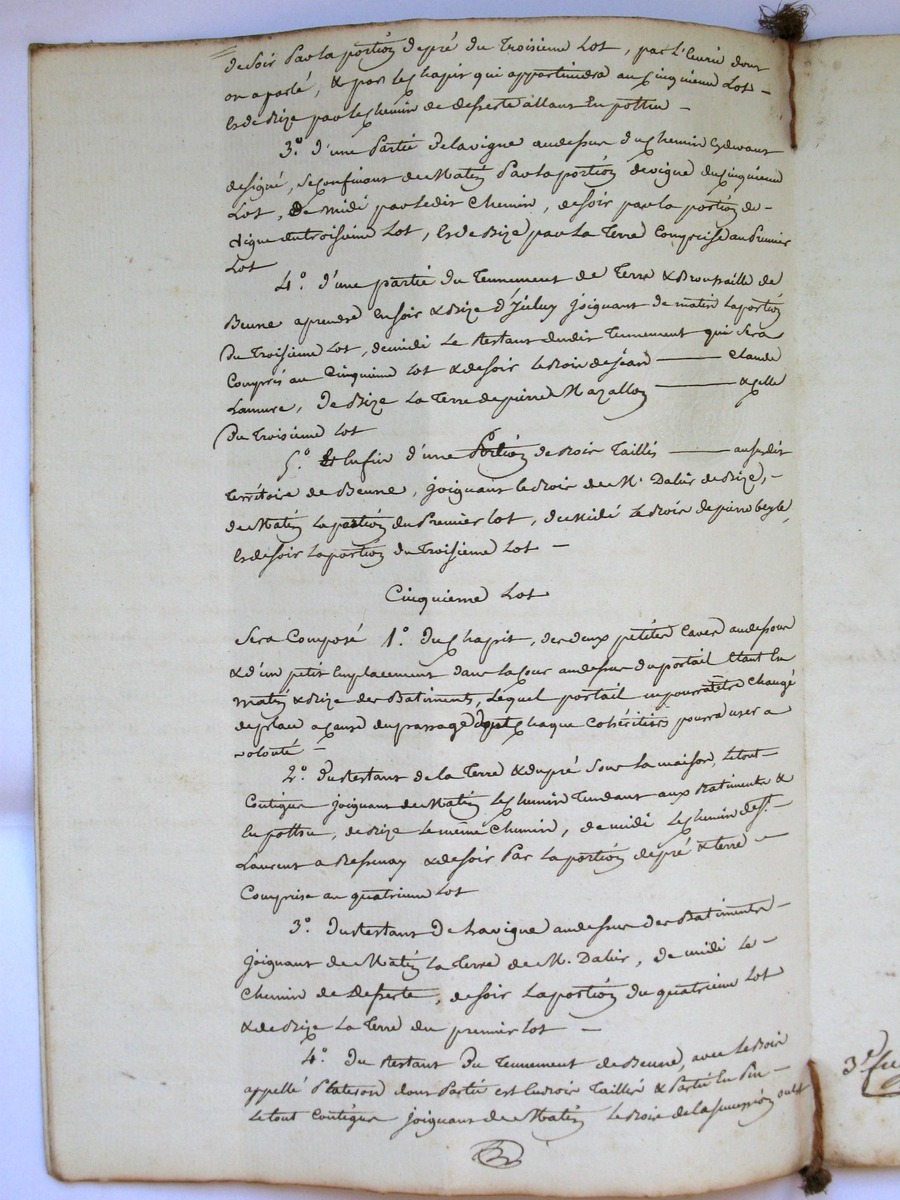 de soir par la portion de pré du troisieme Lot, par l'Ecurie dont
on a parlé, & par le chapit qui appartiendra au cinquieme Lot -
Et de Bize par le chemin de desserte allant en pottu -
3.° d'une Partie de la vigne au dessus du chemin cy devant
designé, se confinant de Matin Par la portion de vigne du cinquieme
Lot, De midi par le dit Chemin, de soir par la portion de -
vigne du troisieme Lot, Et de Bize par La Terre Comprise au Premier
Lot
4.° d'une partie du Tennement de Terre & Broussaille de
Beune a prendre en soir & Bize d'iceluy joignant de matin la portion
Du Troisieme Lot, de midi Le Restant dudit Tennement qui sera
Compris au Cinquieme Lot & de soir le Bois de Jean ——— Claude
Lamure, De Bize La Terre de pierre Mazallon ——— & celle
Du Troisieme Lot
5.° Et Enfin d'une Portion de Bois Taillis ——— au susdit
Territoire de Beune, joignant le Bois de M. Daliir de Bize, -
de Matin La portion du Premier Lot, de Midi Le Bois de pierre
Et de soir La portion du Troisieme Lot -
Cinquieme Lot
Sera Composé 1.° Du chapit, des deux petites Caves au dessous
& d'un petit Emplacement dans la Cour au dessus du portail Etant En
matin & Bize des Batiments, Lequel portail ne pourra être changé
de place a cause du passage dont chaque Cohéritiers pourra user a
volonté -
2.° Du Restant de la Terre & du pré sous la maison, Le tout
Contigue joignant de Matin Le chemin Tendant aux Batiments &
En pottu, de Bize Le même Chemin, de midi Le chemin de S.t -
Laurent a Ressenay & de soir Par La portion de pré & terre -
Comprise au quatrieme Lot
3.° Du Restant De La vigne au dessus des Batiments -
joignant de Matin La Terre de M. Daliir, De midi Le -
Chemin de Desserte, de soir La portion du quatrieme Lot
& de Bize La Terre du premier Lot -
4.° Du Restant Du Tennement de Beune, avec Le Bois
appellé Plateson dont Partie est En Bois Taillis & Partie En Pin -
Le tout Contigue joignant de Matin Le Bois de la succession
3.e